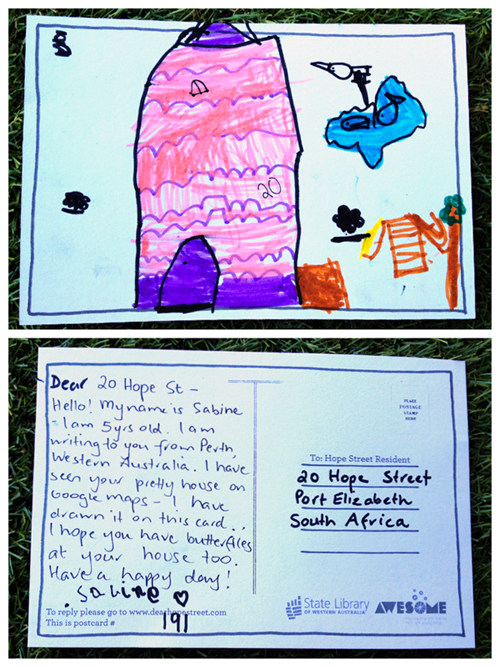 20
Dear 20 Hope St –
Hello! My name is Sabine
– I am 5yrs old. I am
writing to you from Perth,
Western Australia. I have
seen your pretty house on
Google maps – I have
drawn it on this card..
I hope you have butterflies
at your house too.
Have a happy day!
Sabine ♡
To reply please go to www.dearhopestreet.com
This is postcard # 191
PLACE
POSTAGE
STAMP
HERE
To: Hope Street Resident
20 Hope Street
Port Elizabeth
South Africa
State Library
OF WESTERN AUSTRALIA
AWESOME